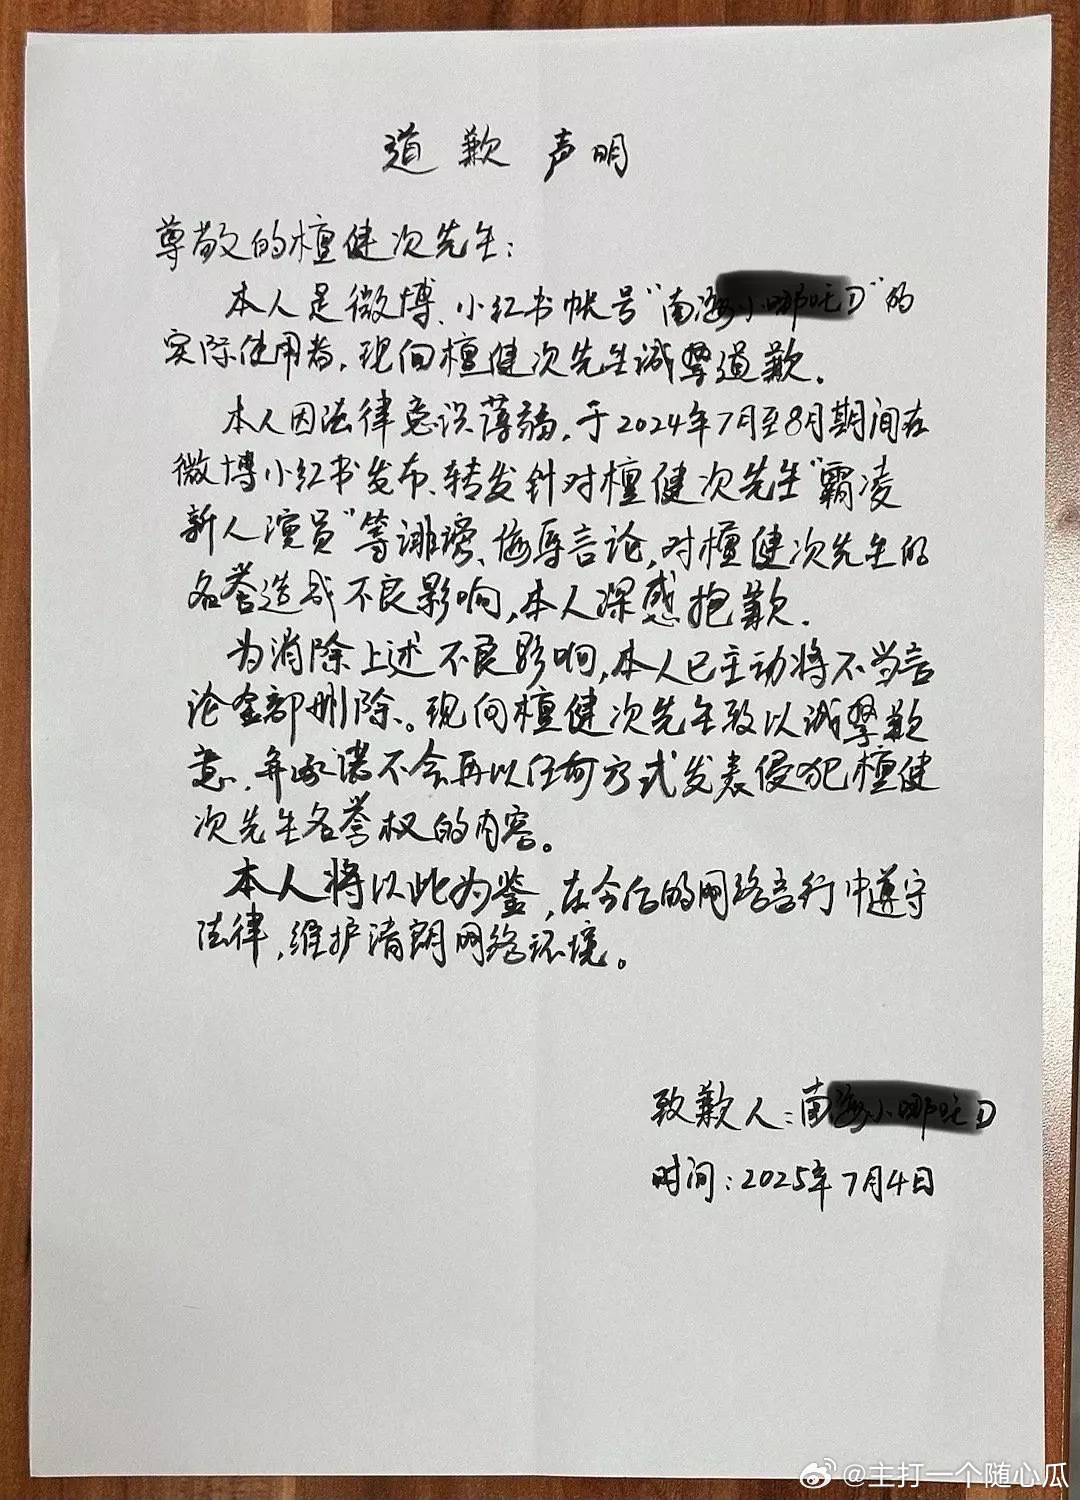 道歉声明
尊敬的檀健次先生：
本人是微博、小红书帐号“南 ”的
实际使用者，现向檀健次先生诚挚道歉．
本人因法律意识薄弱，于2024年7月至8月期间在
微博小红书发布、转发针对檀健次先生“霸凌
新人演员”等诽谤、侮辱言论，对檀健次先生的
名誉造成不良影响，本人深感抱歉．
为消除上述不良影响，本人已主动将不当言
论全部删除。现向檀健次先生致以诚挚歉
意，并承诺不会再以任何方式发表侵犯檀健
次先生名誉权的内容。
本人将以此为鉴，在今后的网络言行中遵守
法律，维护清朗网络环境。
致歉人：南
时间：2025年7月4日
@主打一个随心瓜